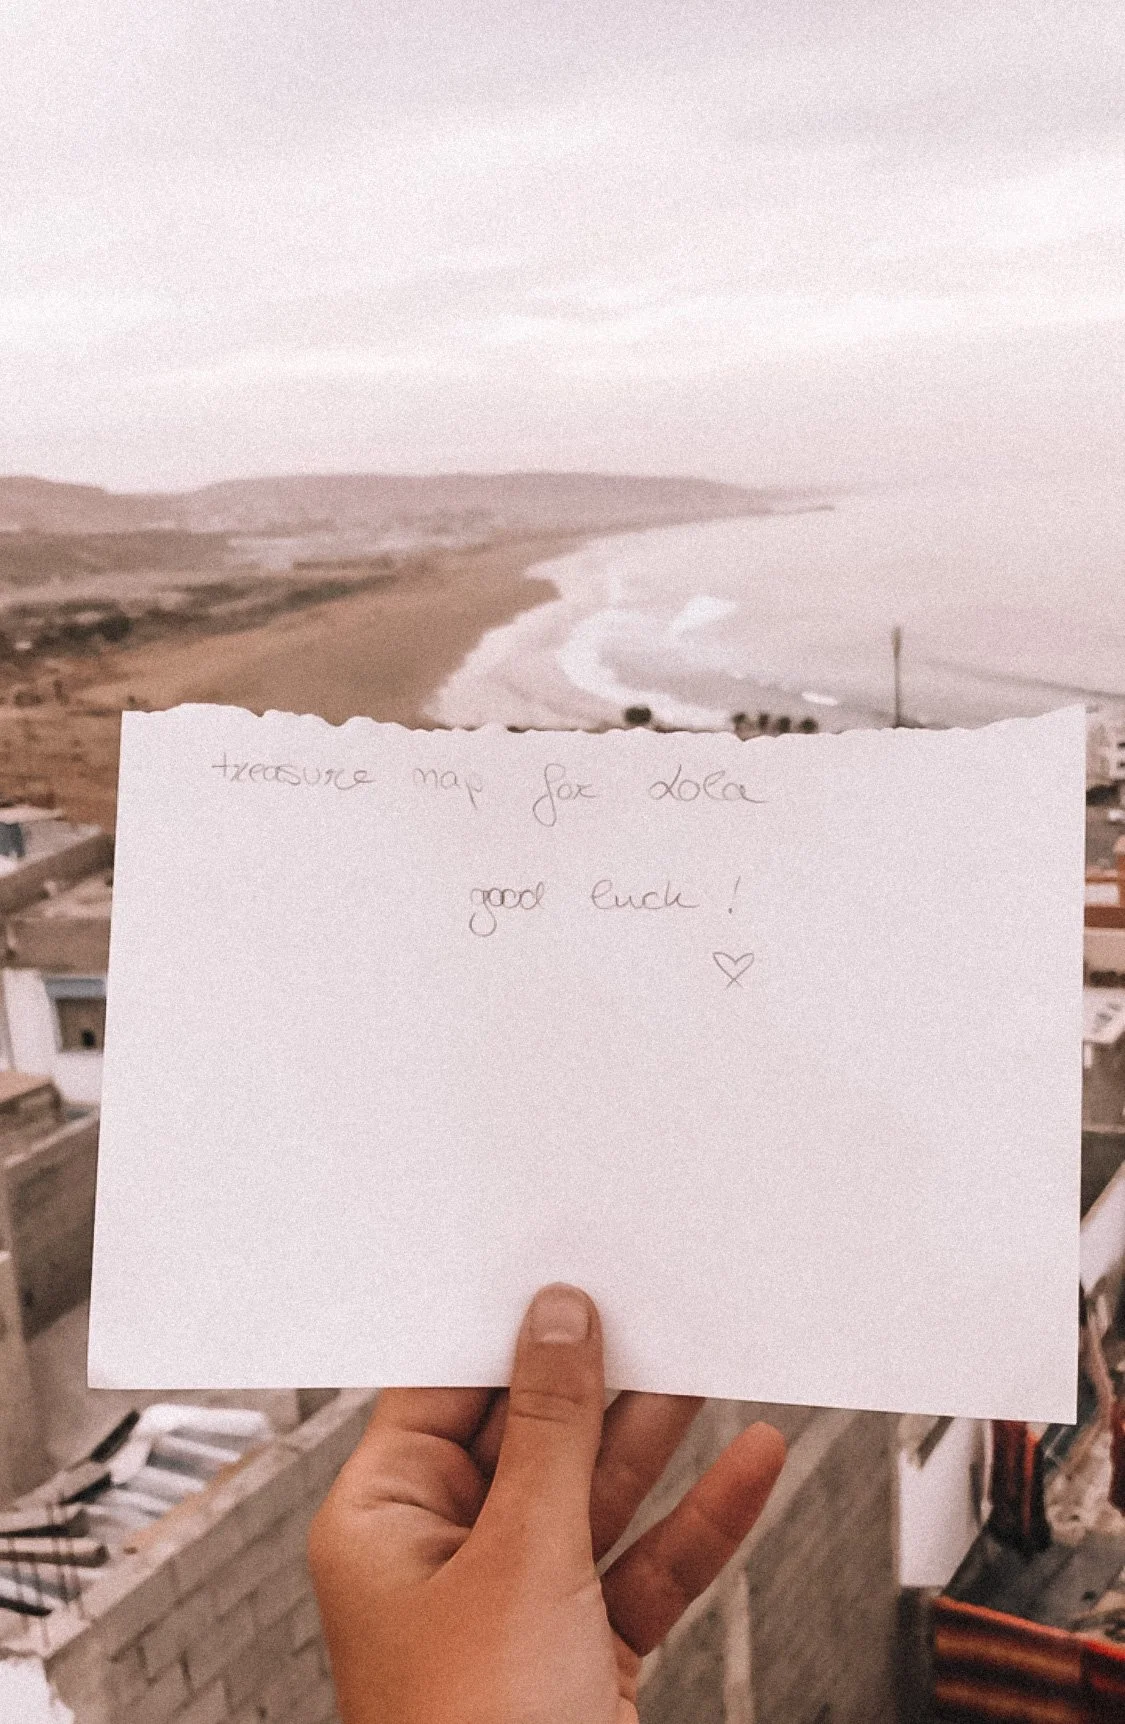 treasure map for Lola
good luck !